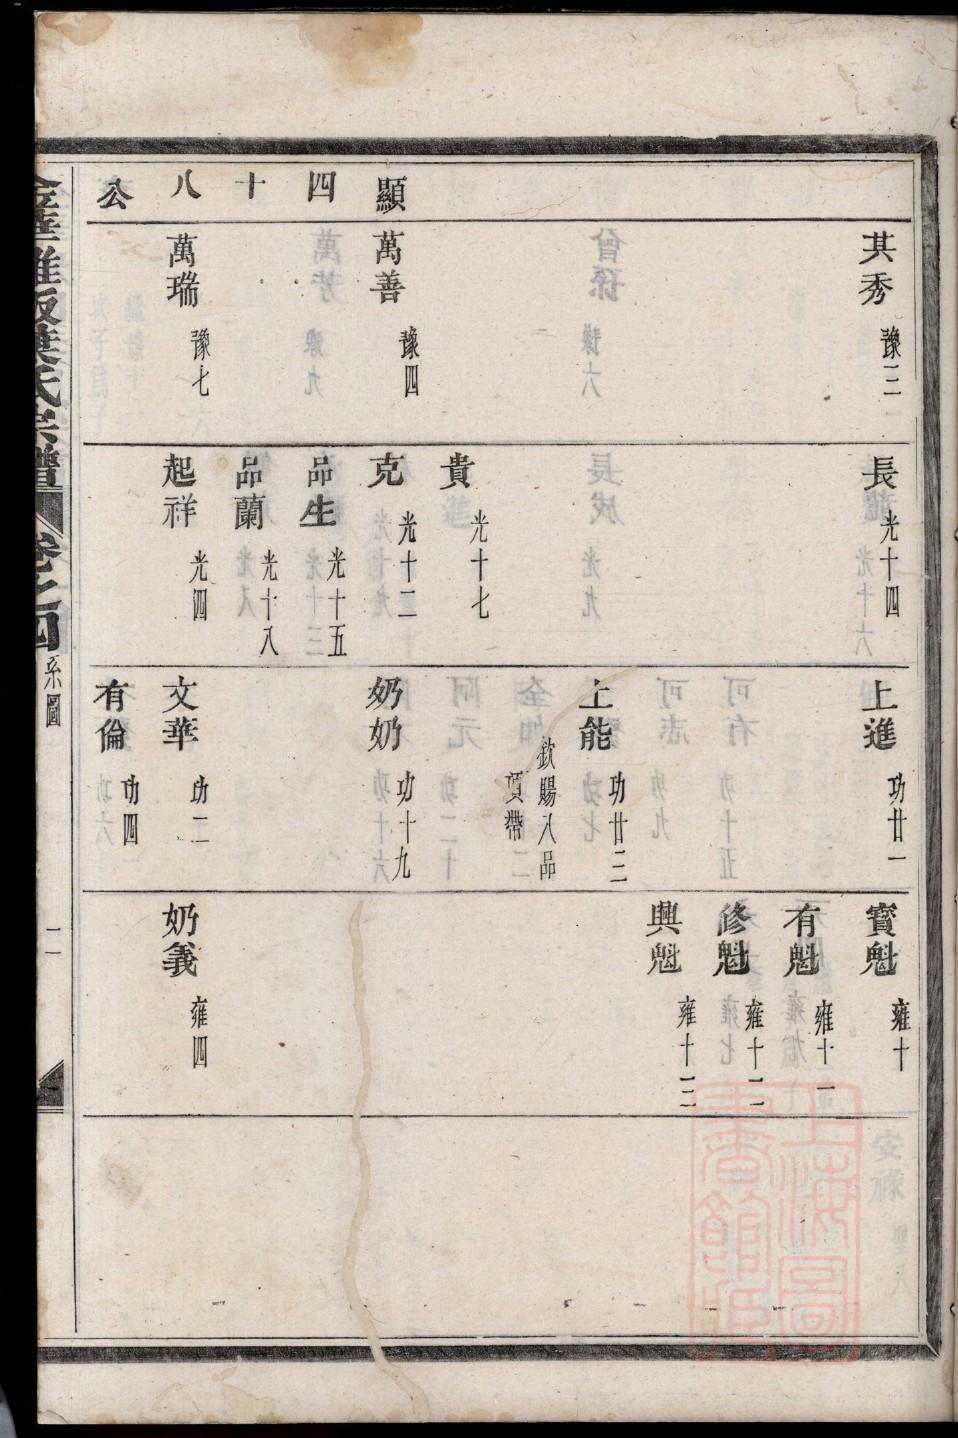 顯四十八公
其秀 豫三
萬善 豫四
萬瑞 豫七
長 光十四
貴 光十七
克 光十二
品生 光十五
品蘭 光十八
起祥 光四
上進 功廿一
上能 功廿三
欽賜八品
頂帶
奶奶 功十九
文華 功二
有倫 功四
寳魁 雍十
有魁 雍十一
修魁 雍十二
興魁 雍十三
奶義 雍四
葉氏宗譜
卷之四
系圖
二
上海圖書館藏